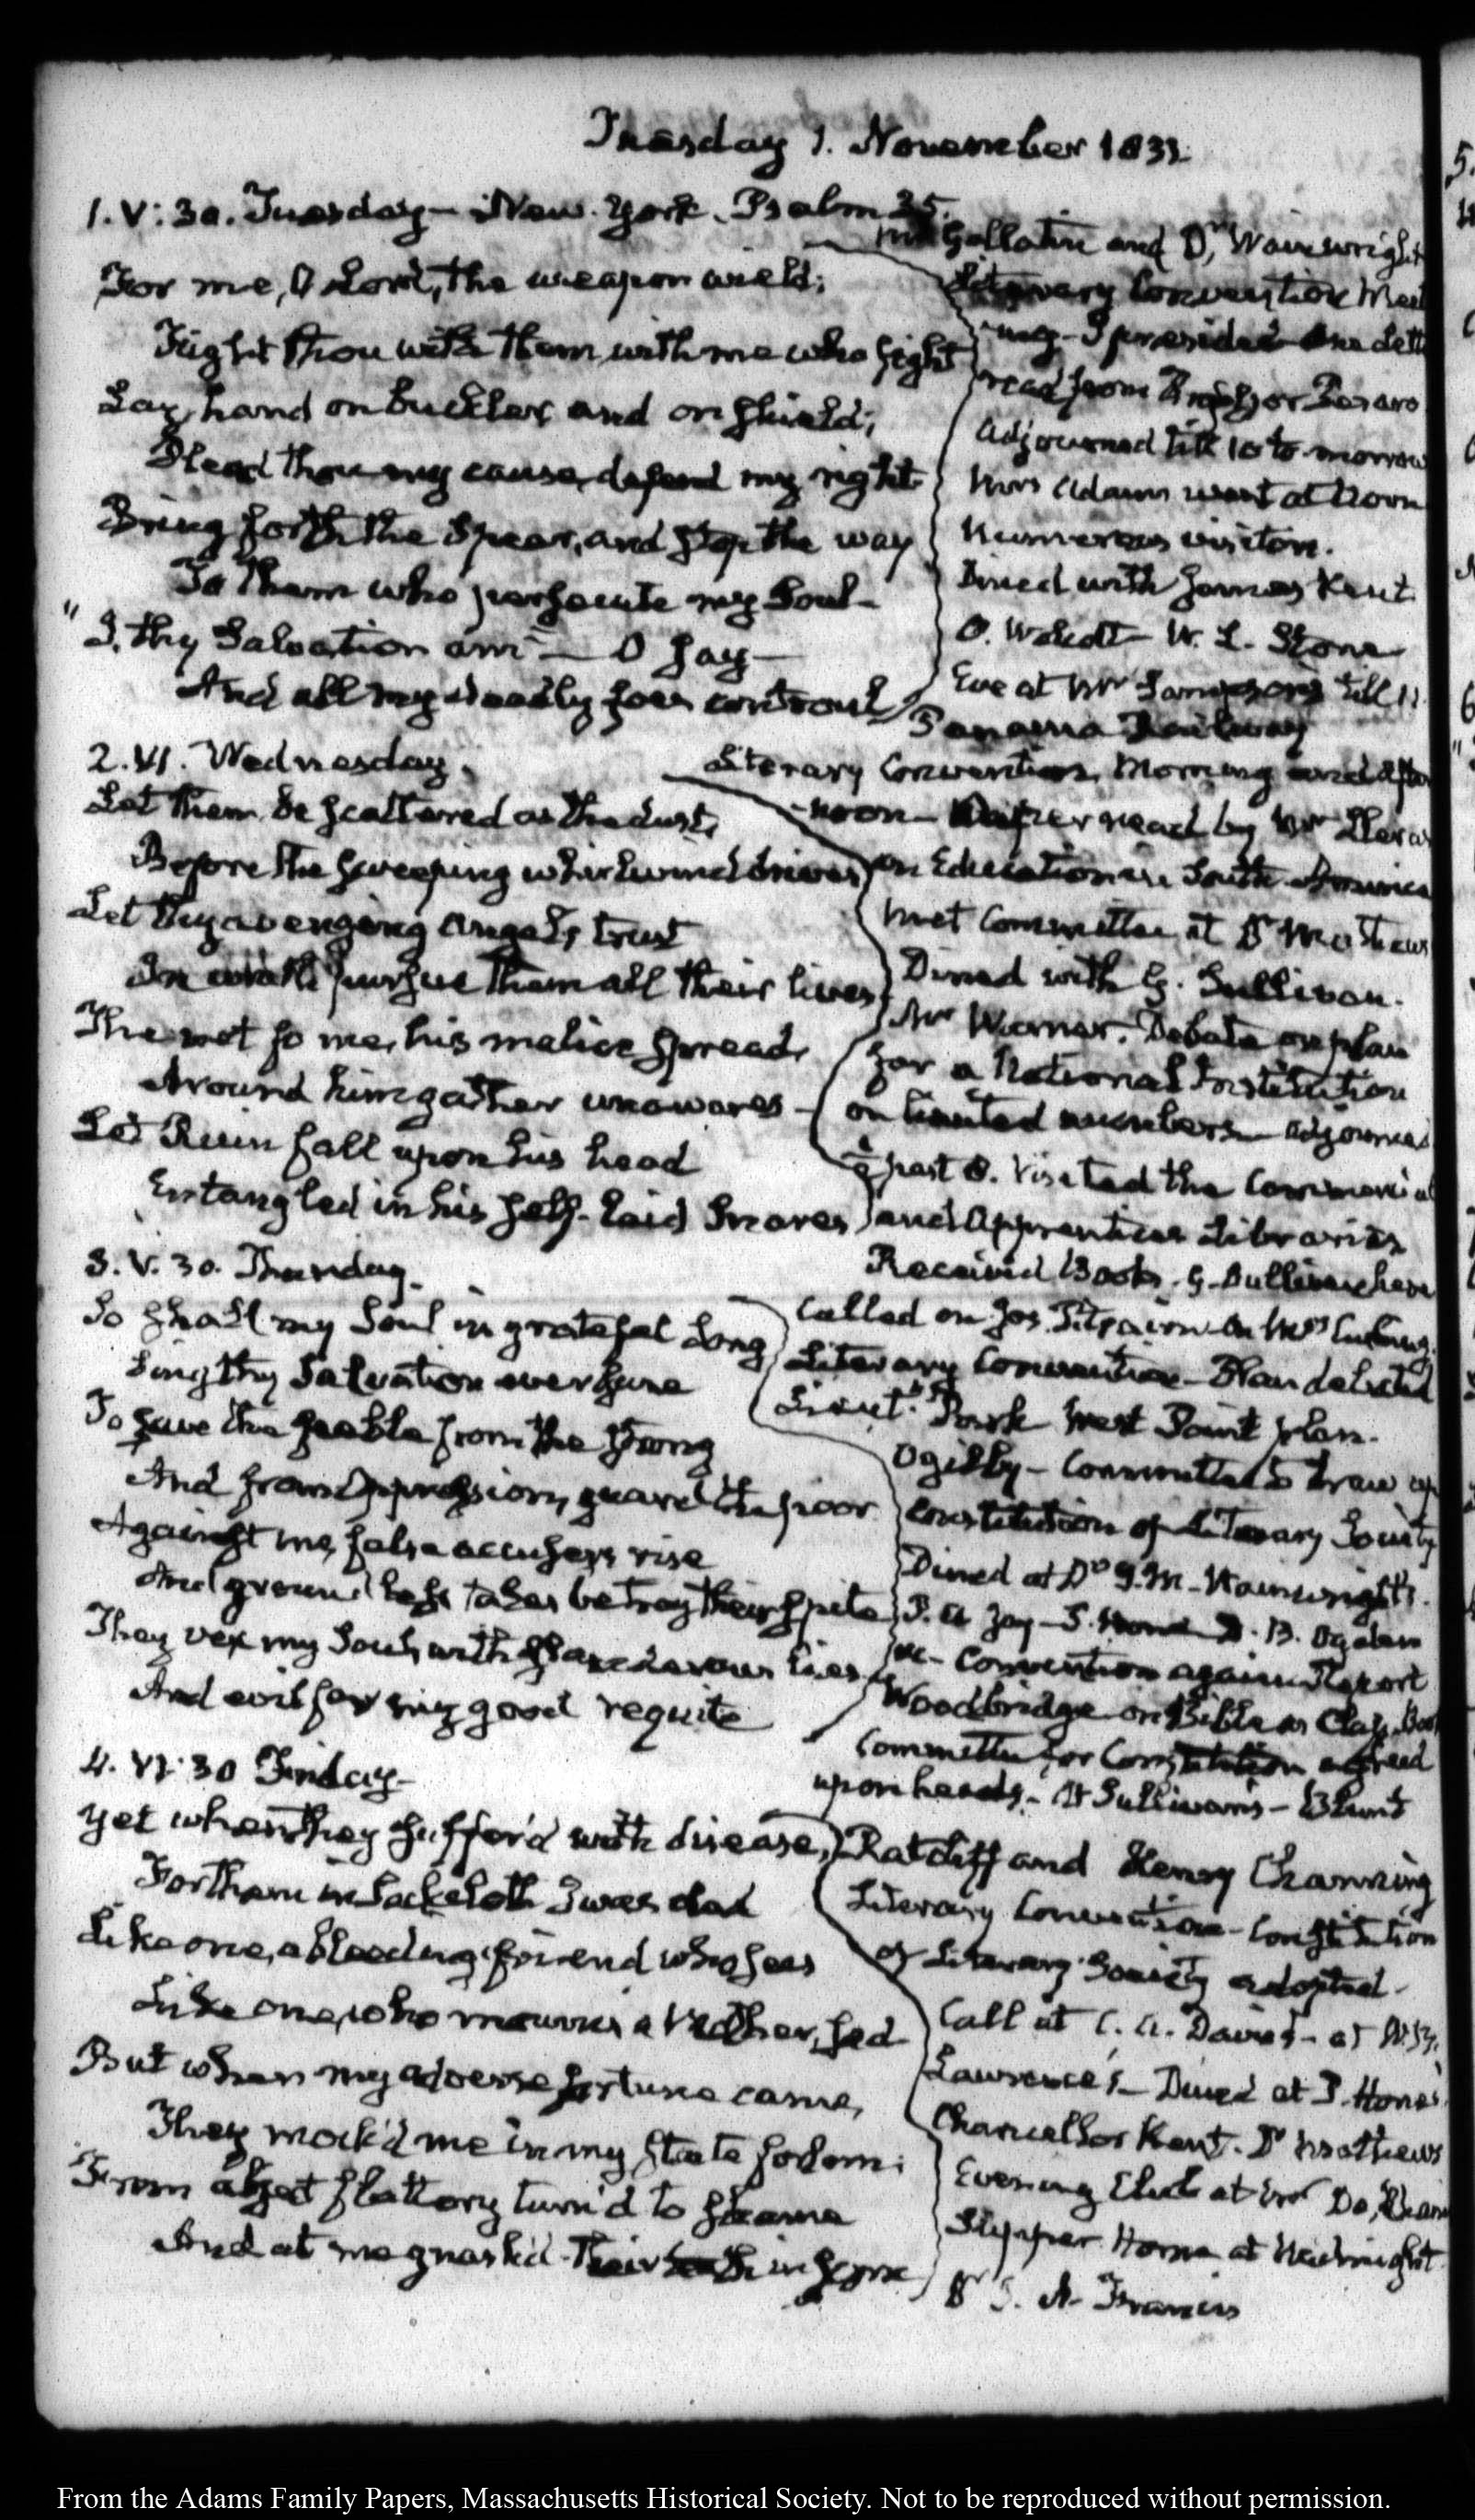 Tuesday 1. November 1831
1. V: 30. Tuesday – New-York. Psalm 35.
For me, O Lord, the weapon wield;
Fight thou with them, with me who fight
Lay hand on buckler, and on shield;
Plead thou my cause, defend my right
Bring forth the Spear, and stop the way
To them who persecute my Soul –
"I, thy Salvation am" – O say –
And all my deadly foes controul
Mr Gallatin and Dr Wainwright
Literary Convention Meet
-ing – I presided – One Lett
read from
Adjourned till 10 to-morrow
Mrs Adams went at Noon
Numerous visitors.
Dined with James Kent
O. Wolcott – W. L. Stone
Eve at Mr Sampson's till 11
Panama Railway
2. VI. Wednesday.
Let them be scattered as the dust,
Before the sweeping whirlwind drives
Let thy avenging angel, trust
In wrath pursue them all their lives
The net for me, his malice spread,
Around him gather unawares –
Let Ruin fall upon his head
Entangled in his self-laid Snares
Literary Convention, Morning and After
-noon – Paper read by Mr
on Education in South America
Met Committee at Dr Mathews
Dined with G. Sullivan.
Mr Warner. Debate on plan
for a National Institution
on limited numbers – adjourned
past 8. Visited the Commercial
and Apprentices Libraries
Received Books. G. Sullivan here
3. V. 30. Thursday.
So shall my Soul in grateful Song
Sing thy Salvation evermore
To save the feeble from the strong
And from Oppression, guard the poor
Against me, false accusers rise
And groundless tales betray their spite
They vex my Soul, with slanderous lies
And evil for my good requite
Called on Jos. Pitcairn – On Mrs
Literary Convention – Plan debated
Lieut. Park West Point plan.
Ogilby – Committee to draw up
Constitution of Literary Society
Dined at Dr J. M. Wainwright's.
P. A. Jay – P. Hone D. B. Ogden
&c – Convention again Report
Woodbridge on Bible as Class Book
Committee for Constitution agreed
upon heads. At Sullivan's – Blunt
4. VI: 30 Friday –
Yet when they suffer'd with disease,
For them in Sackcloth I was clad
Like one, a bleeding friend who sees
Like one, who mourns a Mother, sad
But when my adverse fortune came,
They mock'd me in my state forlorn;
From abject flattery turn'd to shame
And at me gnash'd their teeth in scorn
Ratcliff and Henry Channing
Literary Convention – Constitution
of Literary Society adopted –
Call at C. A. Davis's – at
Lawrence's – Dined at P. Hone's
Chancellor Kent. Dr Mathews
Evening Club at Mr
Supper. Home at Midnight
Dr J. W. Francis
From the Adams Family Papers, Massachusetts Historical Society. Not to be reproduced without permission.